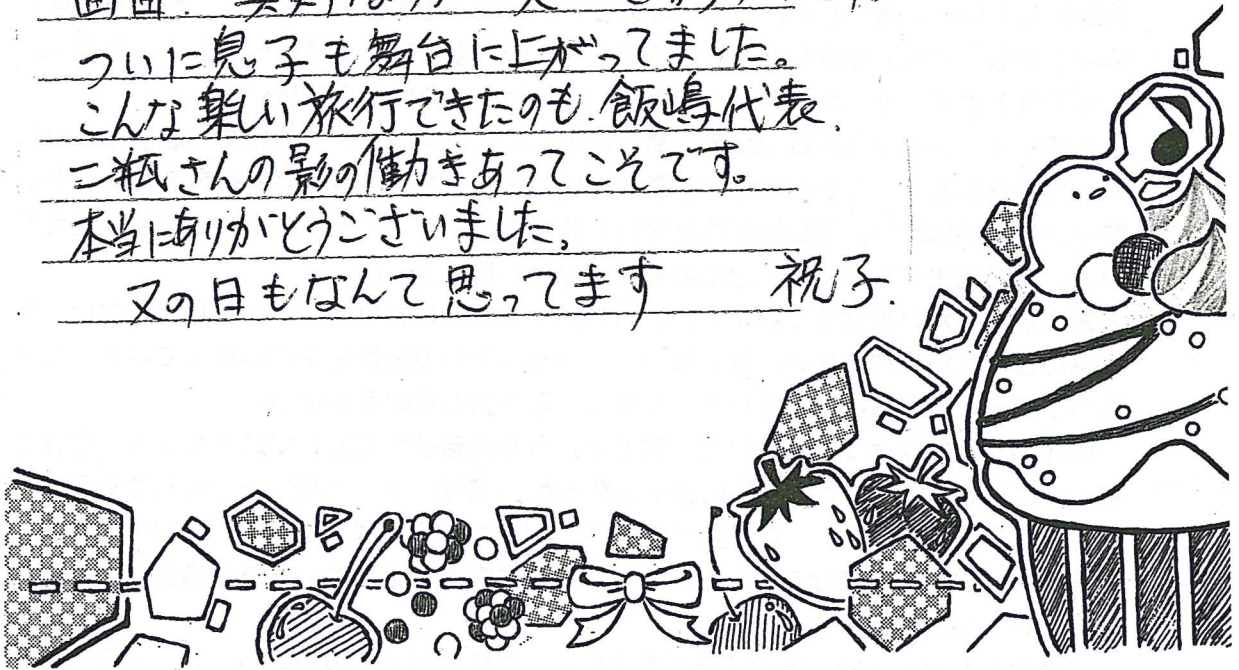 ついに息子も舞台に上がってました。
こんな楽しい旅行できたのも、飯嶋代表、
二瓶さんの影の働きあってこそです。
本当にありがとうございました。
又の日もなんて思ってます 祝子.